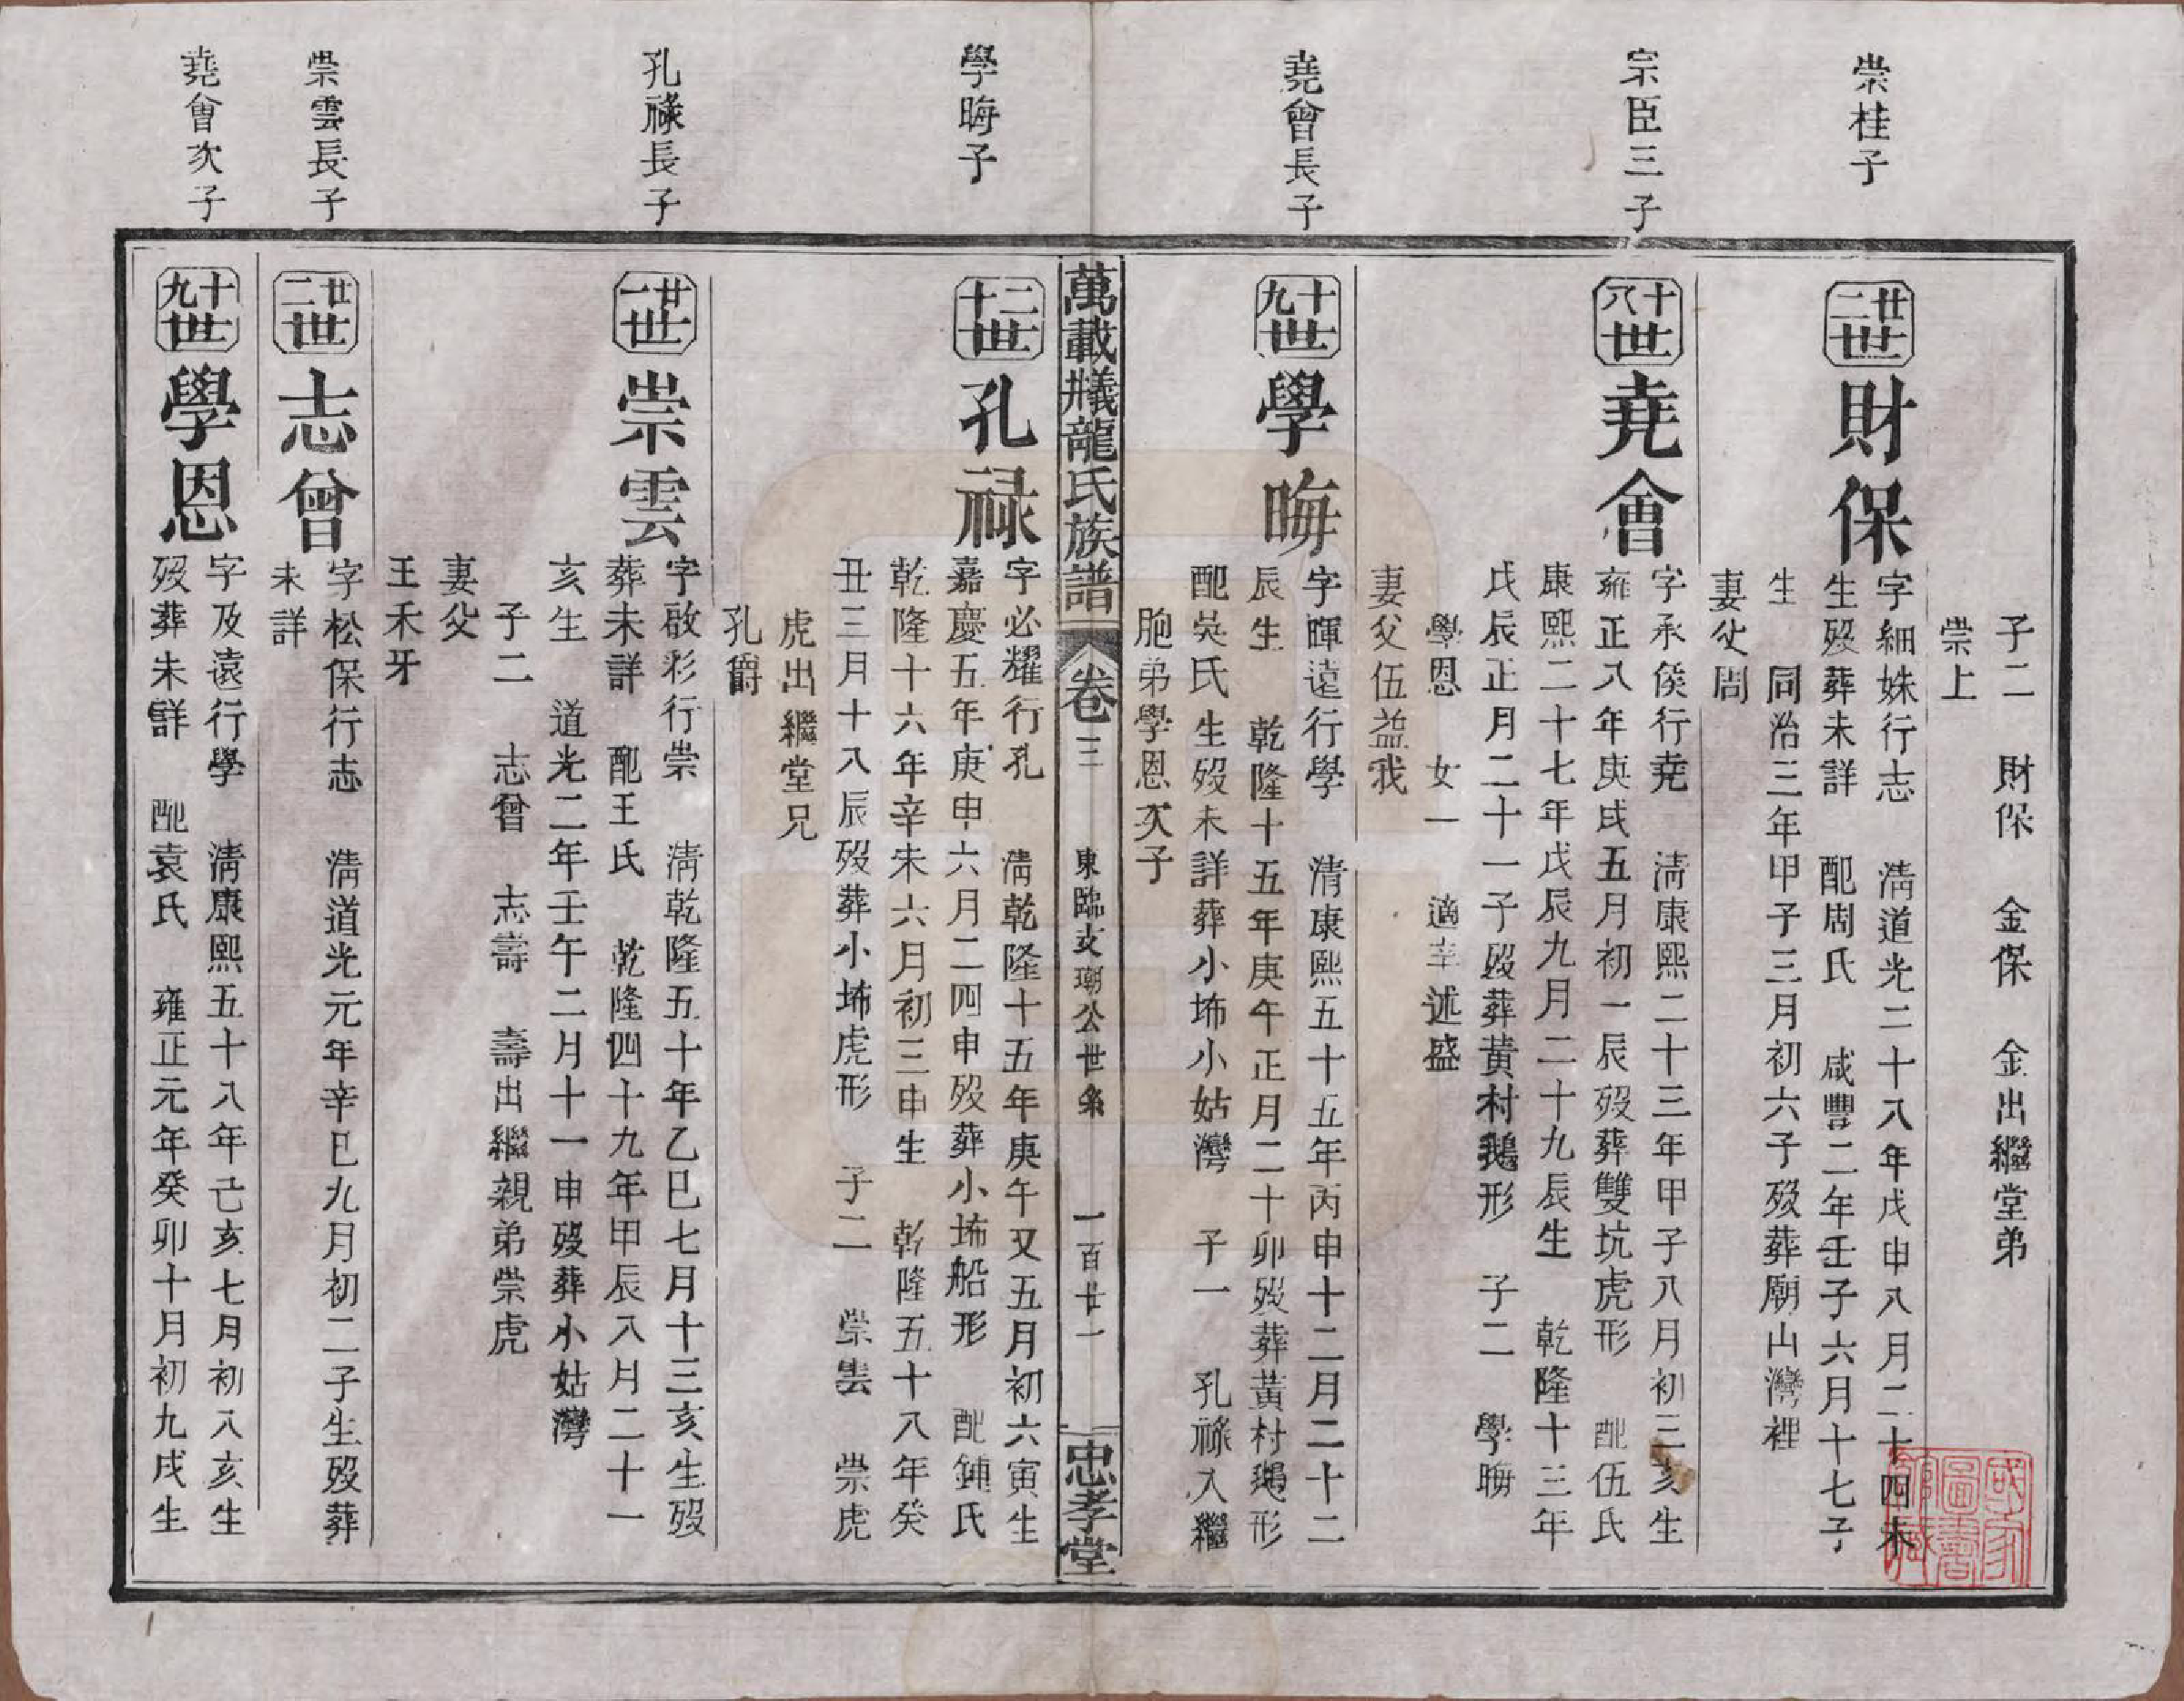 子二　財保　金保　金出繼堂弟
崇上
崇桂子
廿二世
財保
字細姝行志　淸道光二十八年戊申八月二十四未
生歿葬未詳　配周氏　咸豐二年壬子六月十七子
生　同治三年甲子三月初六子歿葬廟山灣裡
妻父周
宗臣三子
十八世
堯會
字承俟行堯　淸康熙二十三年甲子八月初三亥生
雍正八年庚戌五月初一辰歿葬雙坑虎形　配伍氏
康熙二十七年戊辰九月二十九辰生　乾隆十三年
戊辰正月二十一子歿葬黃村鵝形　子二　學晦
學恩　女一　適辛述盛
妻父伍益我
堯會長子
十九世
學晦
字暉遠行學　清康熙五十五年丙申十二月二十二
辰生　乾隆十五年庚午正月二十卯歿葬黃村鵝形
配吳氏生歿未詳葬小㘵小姑灣　子一　孔祿入繼
胞弟學恩次子
萬載㭠龍氏族譜　卷三　東臨支瑚公世系　一百廿一　忠孝堂
學晦子
二十世
孔祿
字必耀行孔　淸乾隆十五年庚午又五月初六寅生
嘉慶五年庚申六月二四申歿葬小㘵船形　配鍾氏
乾隆十六年辛未六月初三申生　乾隆五十八年癸
丑三月十八辰歿葬小㘵虎形　子二　崇雲　崇虎
虎出繼堂兄
孔爵
孔祿長子
廿一世
崇雲
字啟彩行崇　淸乾隆五十年乙巳七月十三亥生歿
葬未詳　配王氏　乾隆四十九年甲辰八月二十一
亥生　道光二年壬午二月十一申歿葬小姑灣
子二　志曾　志壽　壽出繼親弟崇虎
妻父
王禾牙
崇雲長子
廿二世
志曾
字松保行志　淸道光元年辛巳九月初二子生歿葬
未詳
堯會次子
十九世
學恩
字及遠行學　淸康熙五十八年己亥七月初八亥生
歿葬未詳　配袁氏　雍正元年癸卯十月初九戌生